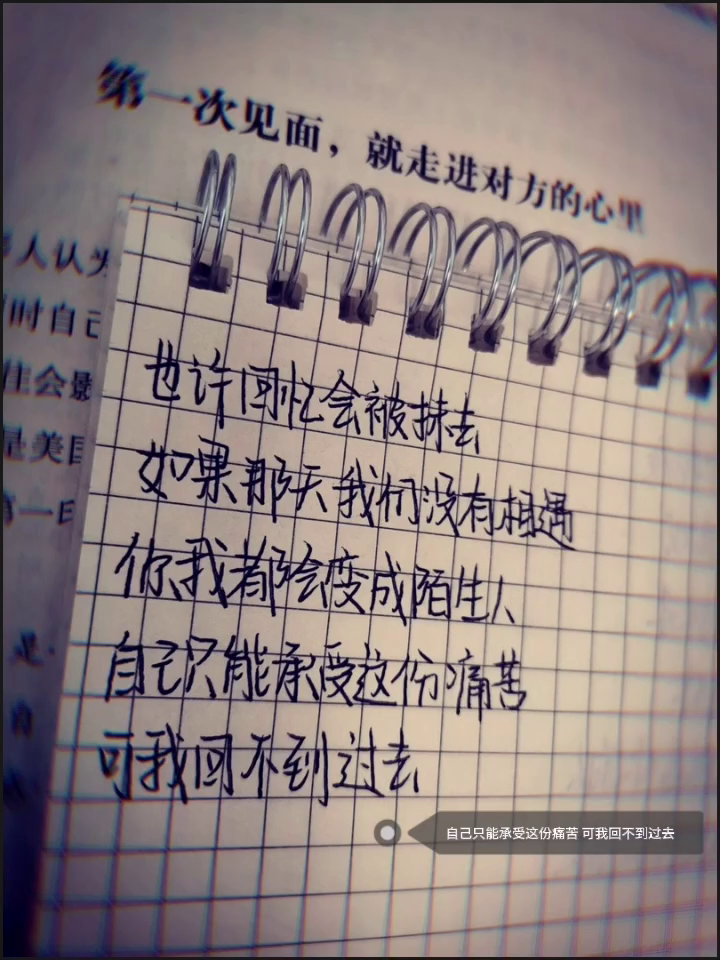 第一次见面，就走进对方的心里
人认为
时自己
佳会影
是美国
第一
是
自
也许回忆会被抹去
如果那天我们没有相遇
你我都会变成陌生人
自己只能承受这份痛苦
可我回不到过去
自己只能承受这份痛苦 可我回不到过去